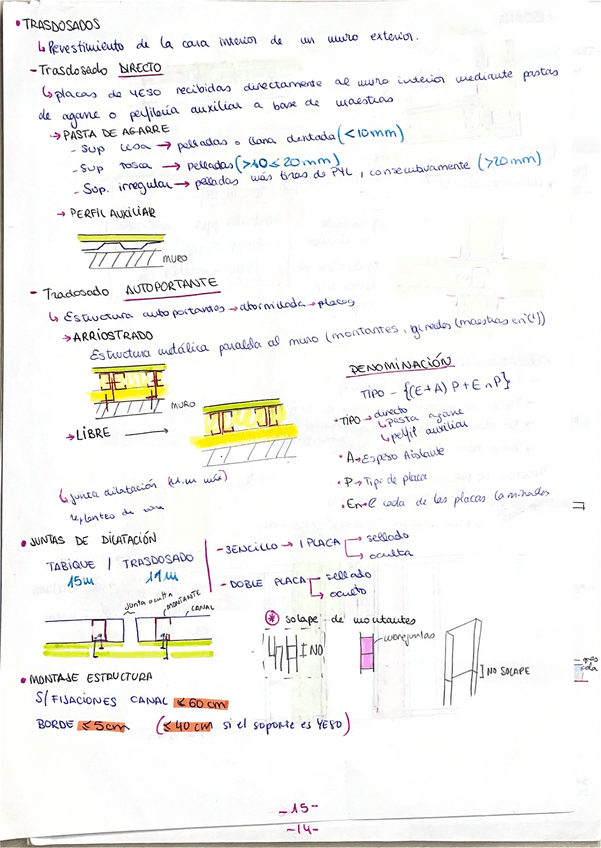 • TRASDOSADOS
↳ Revestimiento de la cara interior de un muro exterior.
- Trasdosado DIRECTO
↳ placas de YESO recibidas directamente al muro interior mediante pastas
de agarre o perfilería auxiliar a base de maestras
→ PASTA DE AGARRE
- Sup lisa → pelladas o llana dentada (<10mm)
- Sup tosca → Pelladas (>10≤20mm)
- Sup. irregular → pelladas más tiras de PYL, consecutivamente (>20mm)
→ PERFIL AUXILIAR
MURO
- Tradosado AUTOPORTANTE
↳ Estructura autoportantes → atornillada → placas
→ ARRIOSTRADO
Estructura metálica paralela al muro (montantes, (maestras en
MURO
→ LIBRE
↳ junta dilatación (11m máx)
replanteo de
DENOMINACIÓN
TIPO - {(E+A) P + E n P}
• TIPO → directo
↳ Pasta agarre
↳ perfil auxiliar
• A → Espeso Aislante
• P → Tipo de placa
de las placas laminadas
• JUNTAS DE DILATACIÓN
TABIQUE / TRASDOSADO
15m 11m
- SENCILLO → 1 PLACA → sellado
→ oculta
- DOBLE PLACA → sellado
→ oculto
junta oculta
MONTANTE
CANAL
⊛ solape de montantes
NO
NO SOLAPE
• MONTAJE ESTRUCTURA
S/ FIJACIONES CANAL ≤ 60 cm
BORDE ≤ 5cm (≤ 40 cm si el soporte es YESO)
-15-
-14-